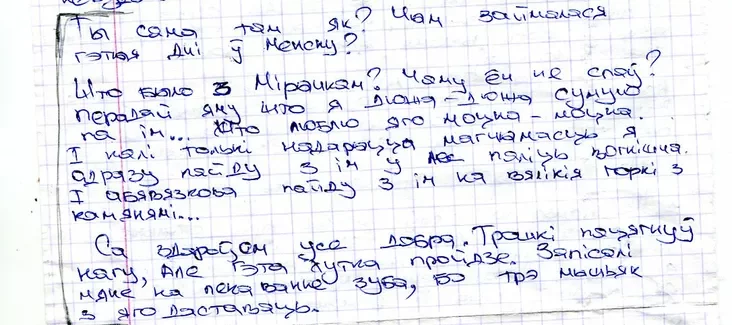 Ты сама там як? Чым займалася
гэтыя дні ў Менску?
Што было з Мірачкам? Чаму ён не спаў?
Перадай яму што я дюжа-дюжа сумую
па ім... Што люблю яго моцна-моцна.
І калі толькі надарыцца магчымасць я
адразу пайду з ім у лес паліць вогнішча.
І абавязкова пайду з ім на вялікія горкі з
камянямі...
Са здароўем усе добра. Трошкі пацягнуў
нагу, але гэта хутка пройдзе. Запісалі
мяне на лекаванне зуба, бо трэ мышьяк
з яго даставаць.